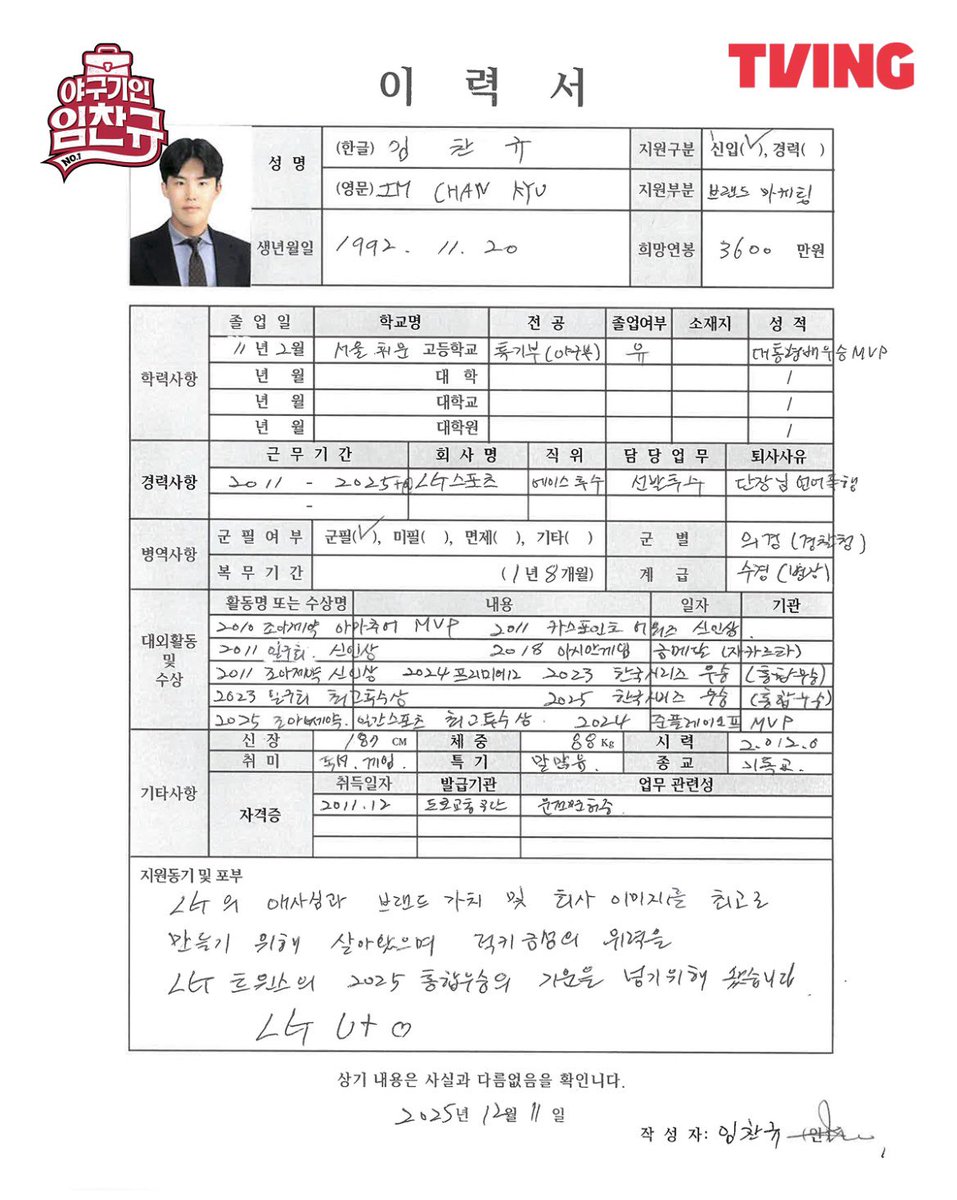 야구기인
임찬규
NO.1
TVING
이 력 서
성 명 (한글) 임 찬 규 지원구분 신입(√), 경력( )
(영문) IM CHAN KYU 지원부분 브랜드 마케팅
생년월일 1992. 11. 20 희망연봉 3600 만원
학력사항 졸 업 일 학교명 전 공 졸업여부 소재지 성 적
11년 2월 서울 휘문 고등학교 특기부(야구부) 유 대통령배우승MVP
년 월 대 학 /
년 월 대학교 /
년 월 대학원 /
경력사항 근 무 기 간 회 사 명 직 위 담 당 업 무 퇴사사유
2011 - 2025 LG스포츠 에이스 투수 선발투수 단장님 언어폭행
-
병역사항 군 필 여 부 군필(√), 미필( ), 면제( ), 기타( ) 군 별 의경(경찰청)
복 무 기 간 (1년 8개월) 계 급 수경(병장)
대외활동 및 수상 활동명 또는 수상명 내용 일자 기관
2010 조아제약 아마추어 MVP 2011 카스포인트 어워즈 신인상.
2011 일구회. 신인상 2018 아시안게임 금메달 (자카르타)
2011 조아제약 신인상 2024 프리미어12 2023 한국시리즈 우승 (통합우승)
2023 일구회 최고투수상 2025 한국시리즈 우승 (통합우승)
2025 조아제약. 일간스포츠 최고투수상. 2024 준플레이오프 MVP
기타사항 신 장 187 CM 체 중 88 Kg 시 력 2.0/2.0
취 미 독서. 게임. 특 기 말많음. 종 교 기독교.
자격증 취득일자 발급기관 업무 관련성
2011.12 도로교통공단 운전면허증
지원동기 및 포부
LG의 애사심과 브랜드 가치 및 회사 이미지를 최고로
만들기 위해 살아왔으며 럭키금성의 위력을
LG 트윈스의 2025 통합우승의 기운을 넘기위해 왔습니다.
LG U+ ♡
상기 내용은 사실과 다름없음을 확인니다.
2025년 12월 11일
작 성 자: 임찬규 (인)